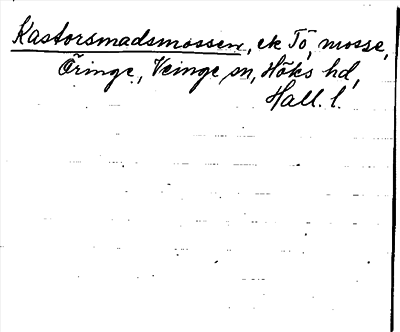 Kastorsmadsmossen, ek Tö, mosse,
Öringe, Veinge sn, Höks hd,
Hall. l.